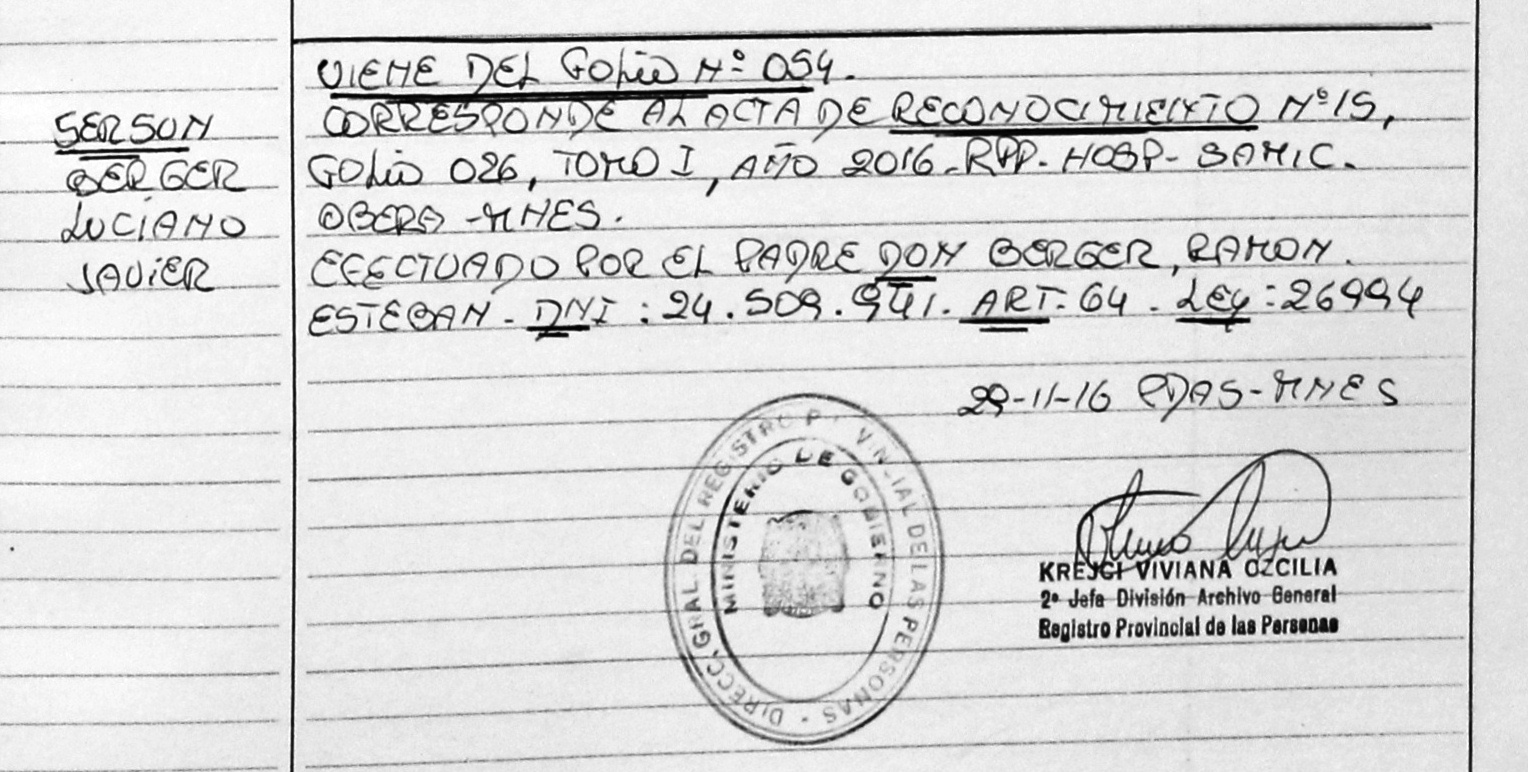 VIENE DEL FOLIO Nº 054.
SERSUN
BERGER
LUCIANO
JAVIER
CORRESPONDE AL ACTA DE RECONOCIMIENTO Nº 15,
FOLIO 026, TOMO I, AÑO 2016-RPP-HOSP-SAMIC.
OBERA-MNES.
EFECTUADO POR EL PADRE DON BERGER, RAMON.
ESTEBAN. DNI: 24.509.941. ART: 64. LEY: 26994
29-11-16 PDAS-MNES
DIRECC. GRAL. DEL REGISTRO P VINCIAL DE LAS PERSONAS -
MINISTERIO DE GOBIERNO
KREJCI VIVIANA CZCILIA
2º Jefa División Archivo General
Registro Provincial de las Personas